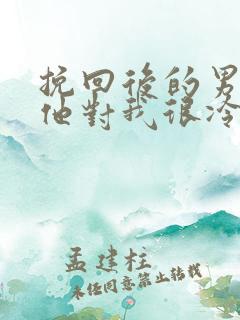 挽回後的男
他對我很冷
孟建柱
未经同意禁止转载